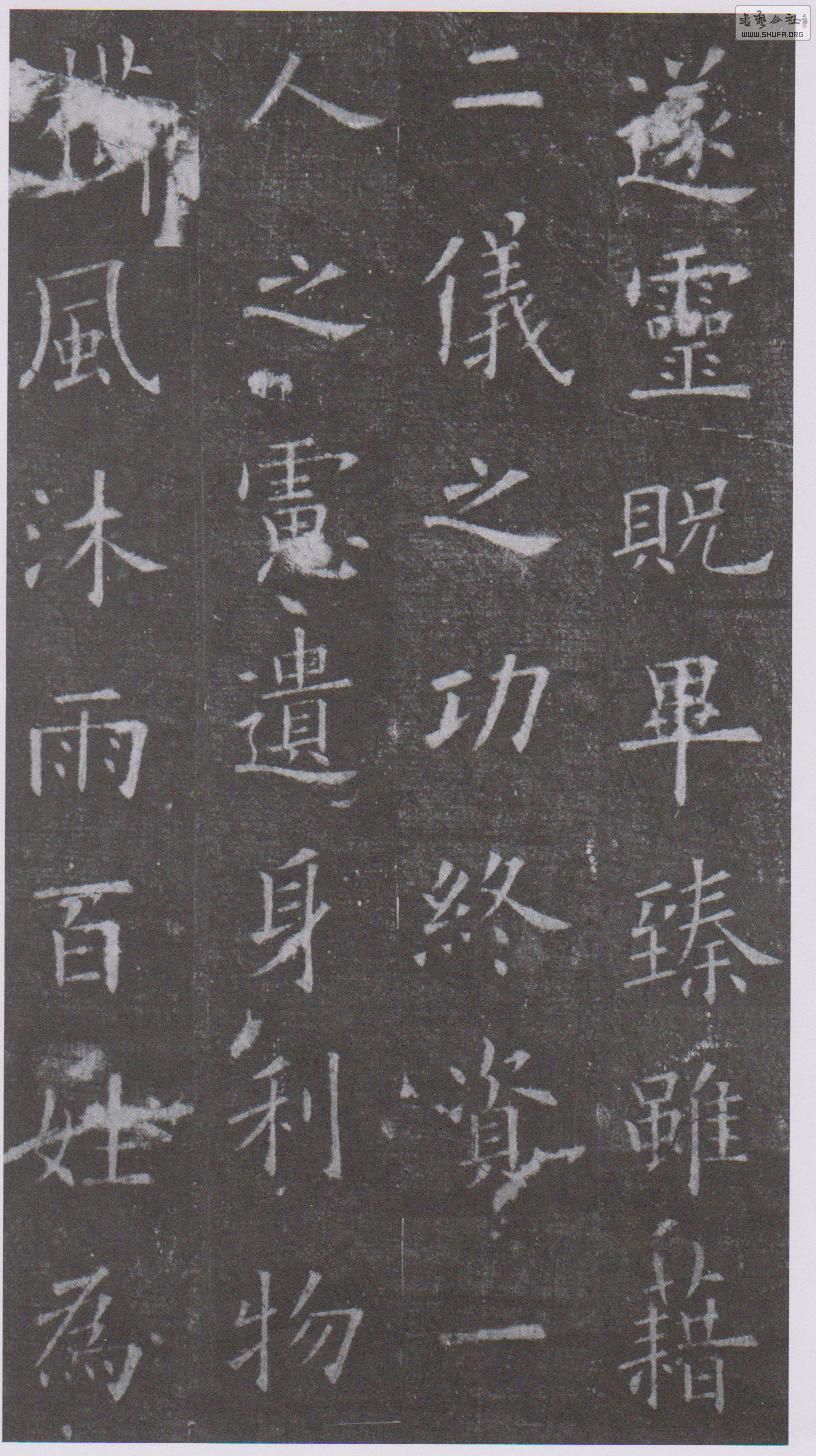 遂靈貺畢臻雖藉
二儀之功終資一
人之慮遺身利物
櫛風沐雨百姓為
书艺公社
WWW.SHUFA.ORG